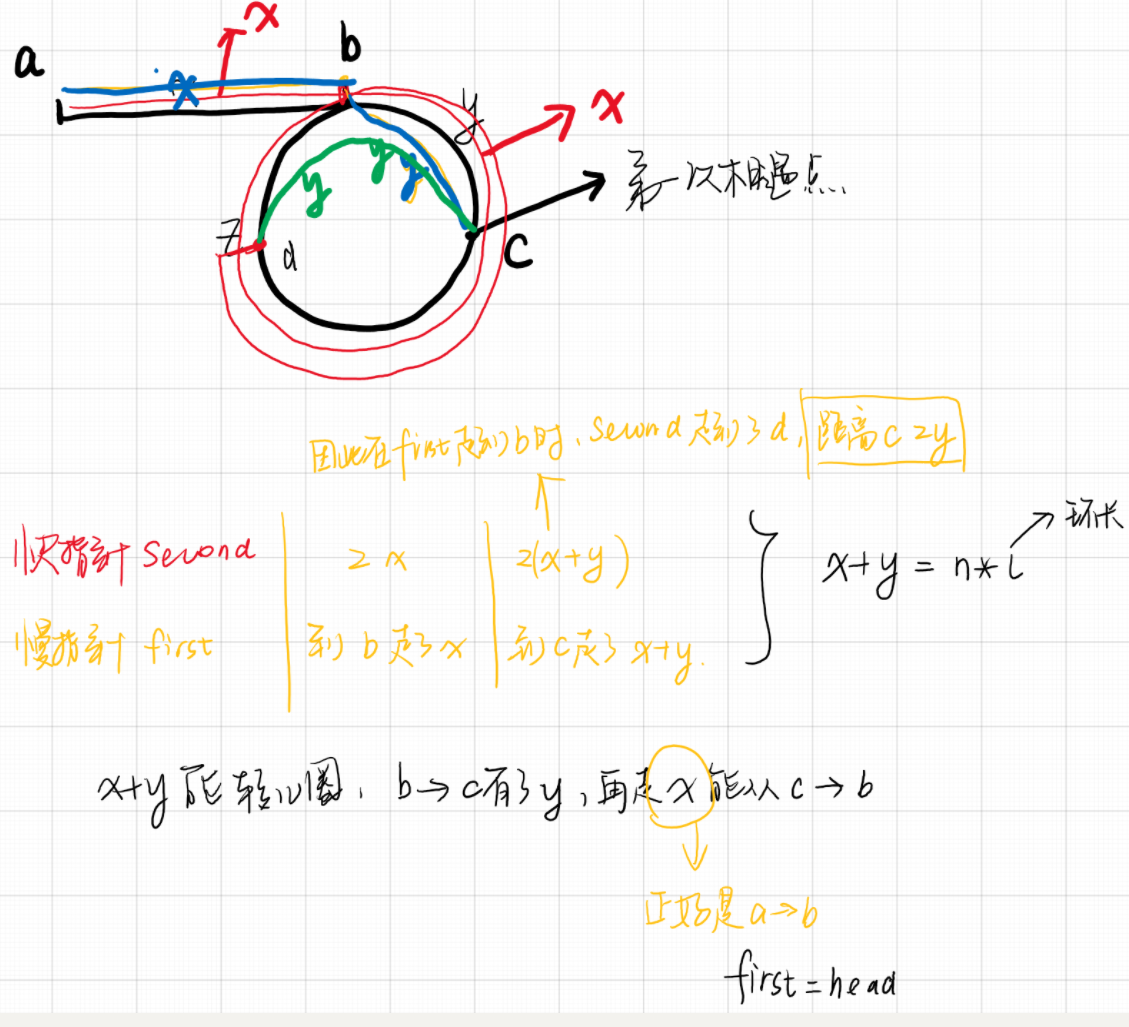 x
a
b
x
y
x
第一次相遇点
y
y
y
z
d
c
因此在first走到b时,second走到了d,距离c 2y
快指针 second 2x 2(x+y)
x+y = n*L
环长
慢指针 first 到b走了x 到c走了x+y.
x+y能转n圈, b→c有了y,再走x能从c→b
正好是a→b
first = head